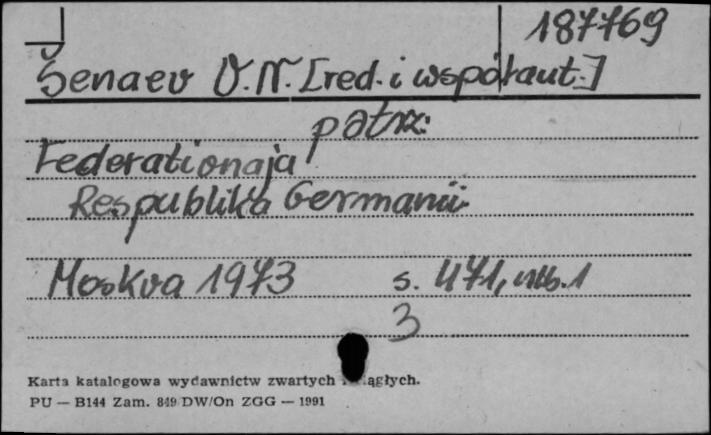 187769
Šenaev V. N. [red. i współaut.]
patrz:
Federationaja
Respublika Germanii
Moskva 1973 s. 471, nlb. 1
3
Karta katalogowa wydawnictw zwartych i ciągłych.
PU — B144 Zam. 849 DW/On ZGG — 1991